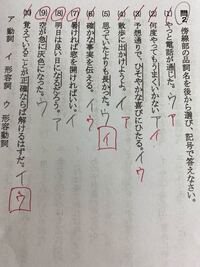 問2 傍線部の品詞名を後から選び、記号で答えなさい。
(1) やっと電話が通じた。ウ ア
(2) 何度やってもうまくいかない ア イ
(3) 予想通りで、ひそやかな喜びにひたる。イ ウ
(4) 散歩に出かけようよ。イ ア
(5) 思っていたよりも長かった。ウ イ
(6) 確かな事実を伝える。イ ウ
(7) 暑ければ窓を開ければいい。イ
(8) 明日は良い日になるだろう。ア
(9) 空が急に灰色になった。ウ
(10) 覚えていることが正確ならば解けるはずだ。イ ウ
ア 動詞 イ 形容詞 ウ 形容動詞